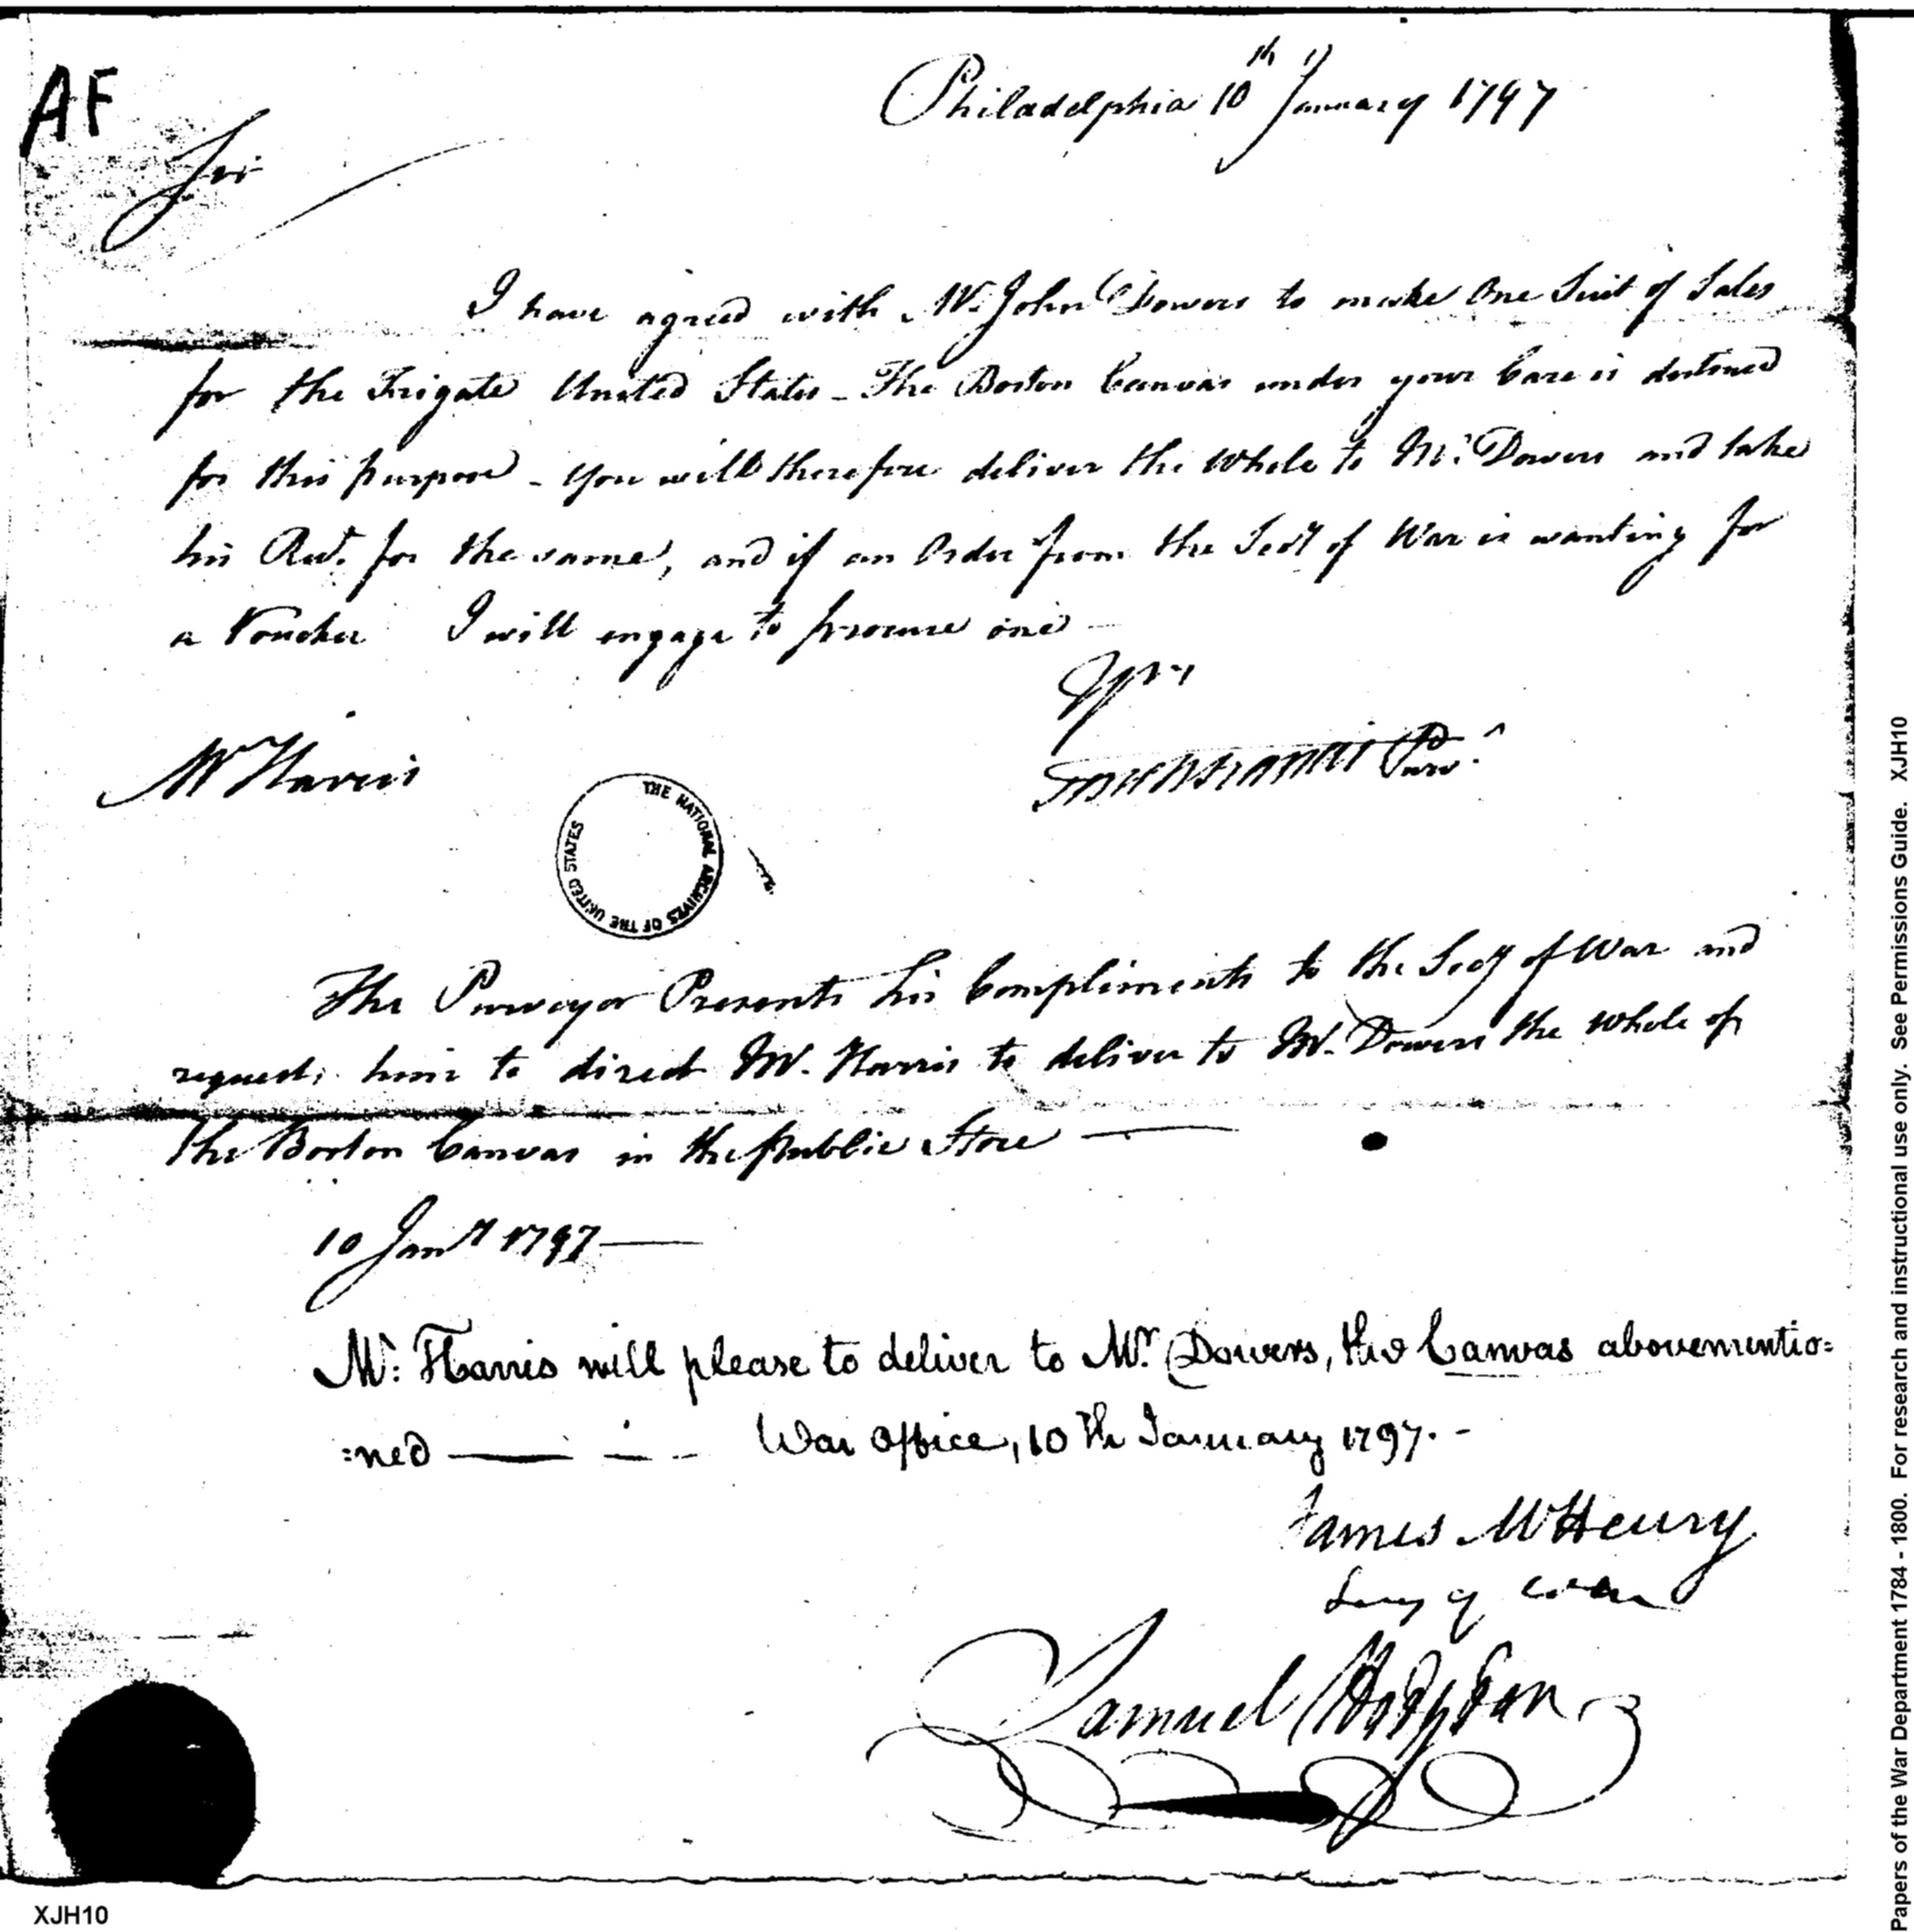 AF
Philadelphia 10th January 1797
Sir
I have agreed with Mr. John Dowers to make One Suit of Sales
for the Frigate United States - The Boston Canvas under your Care is destined
for this purpose - you will therefore deliver the whole to Mr. Dowers and take
his Rect. for the same, and if an Order from the Secy of War is wanting for
a Voucher I will engage to procure one -
Mr Harris
THE NATIONAL ARCHIVES OF THE UNITED STATES
The Purveyor Presents his Compliments to the Secy of War and
requests him to direct Mr. Harris to deliver to Mr. Dowers the whole of
the Boston Canvas in the public Store —
10 Jany 1797 —
Mr: Harris will please to deliver to Mr. Dowers, the Canvas abovementio=
=ned — War Office, 10th January 1797. -
James McHenry
Secy of War
Samuel Hodgdon
XJH10
Papers of the War Department 1784 - 1800. For research and instructional use only. See Permissions Guide. XJH10